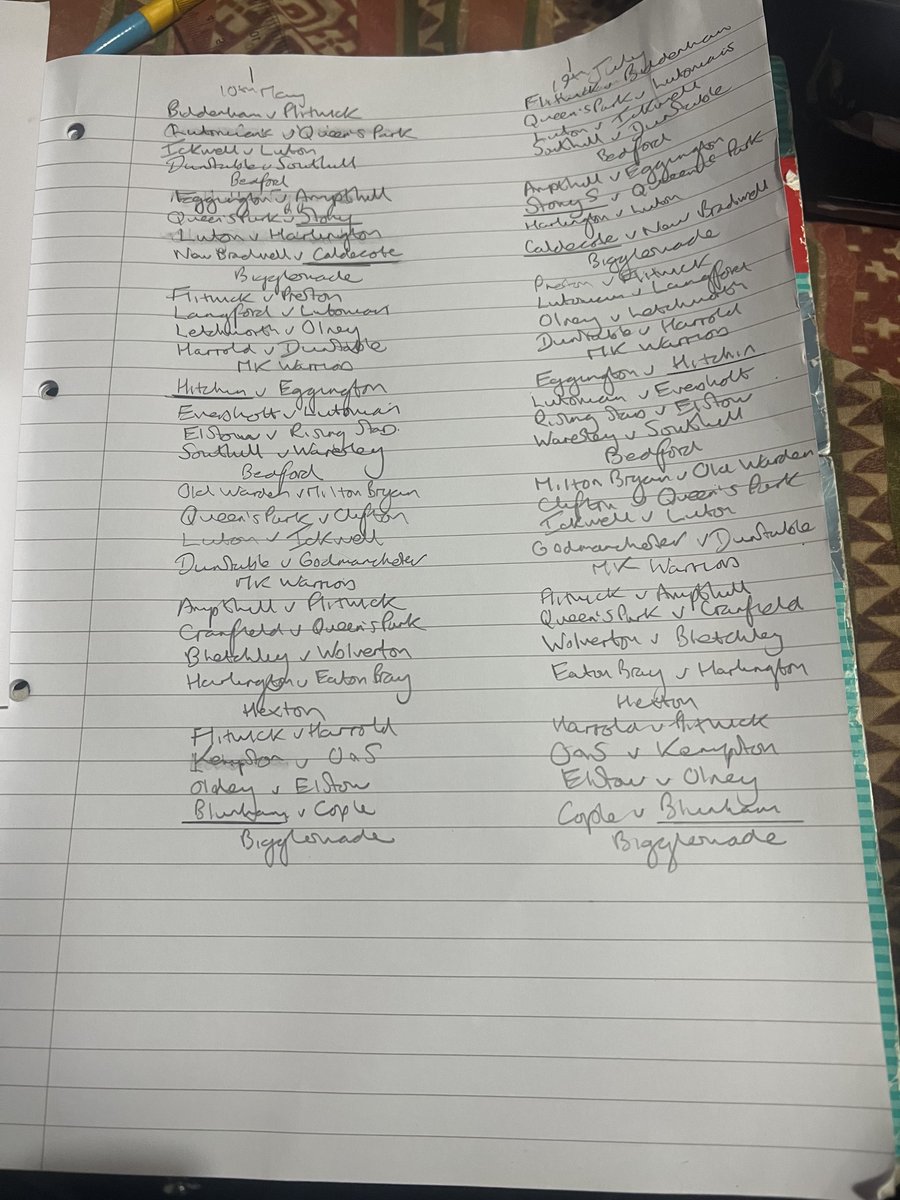 10th May
Biddenham v Flitwick
Lutonian's v Queen's Park
Ickwell v Luton
Dunstable v Southill
Bedford
Eggington v Ampthill
Queen's Park v Stony
Luton v Harlington
New Bradwell v Caldecote
Biggleswade
Flitwick v Preston
Langford v Lutonian
Letchworth v Olney
Harrold v Dunstable
MK Warriors
Hitchin v Eggington
Eversholt v Lutonian
Elstow v Rising Star
Southill v Waresley
Bedford
Old Warden v Milton Bryan
Queen's Park v Clifton
Luton v Ickwell
Dunstable v Godmanchester
MK Warriors
Ampthill v Flitwick
Cranfield v Queen's Park
Bletchley v Wolverton
Harlington v Eaton Bray
Hexton
Flitwick v Harrold
Kempton v OaS
Olney v Elstow
Blunham v Cople
Biggleswade
July
Flitwick v Biddenham
Queen's Park v Lutonian's
Luton v Ickwell
Southill v Dunstable
Bedford
Ampthill v Eggington
Stony S v Queen's Park
Harlington v Luton
Caldecote v New Bradwell
Biggleswade
Preston v Flitwick
Lutonian v Langford
Olney v Letchworth
Dunstable v Harrold
MK Warriors
Eggington v Hitchin
Lutonian v Eversholt
Rising Star v Elstow
Waresley v Southill
Bedford
Milton Bryan v Old Warden
Clifton v Queen's Park
Ickwell v Luton
Godmanchester v Dunstable
MK Warriors
Flitwick v Ampthill
Queen's Park v Cranfield
Wolverton v Bletchley
Eaton Bray v Harlington
Hexton
Harrold v Flitwick
OaS v Kempton
Elstow v Olney
Cople v Blunham
Biggleswade